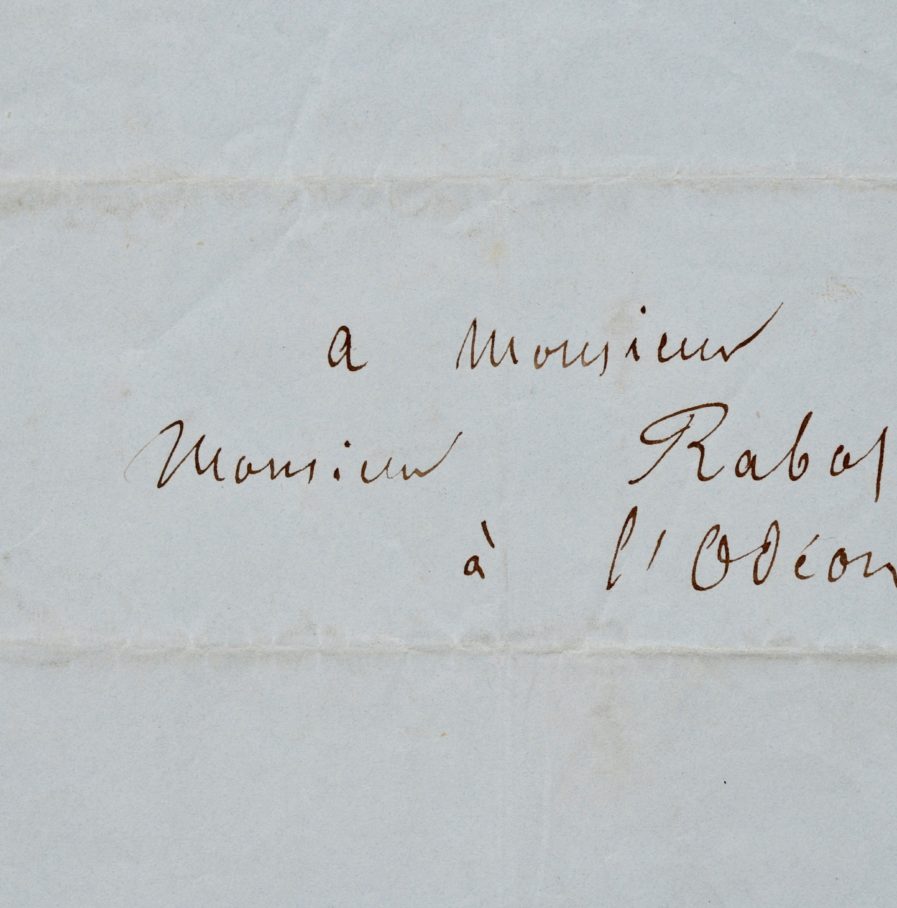 a Monsieur
Monsieur Rabot
à l'Odéon